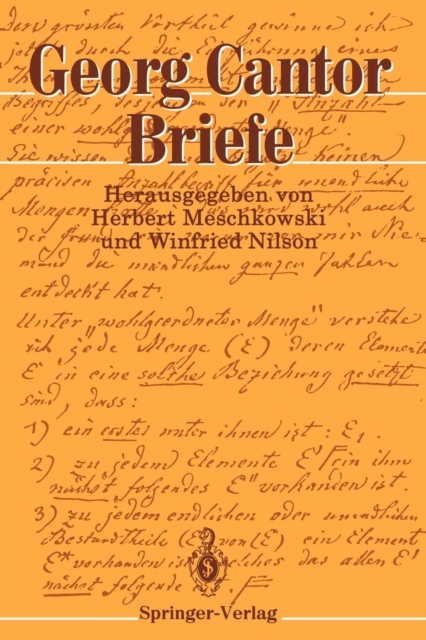 Den grössten Vortheil gewinnt ich
jetzt durch die Einführung eines
Georg Cantor
Begriffes, desjenigen der „Anzahl
einer wohlgeordneten Menge".
Briefe
Sie wissen keinen
präcisen Anzahlbegriff für unendliche
Herausgegeben von
Mengen wohl auch
Herbert Meschkowski
der Grund mir Nie-
und Winfried Nilson
mand die unendlichen ganzen Zahlen
entdeckt hat.
Unter „wohlgeordneter Menge" verstehe
ich jede Menge (E) deren Elemente
E in eine solche Beziehung gesetzt
sind, dass:
1) ein erstes unter ihnen ist: E₁.
2) zu jedem Elemente E' ein ihm
nächst folgendes E" vorhanden ist.
3) zu jedem endlichen oder unendlichen
Bestandtheile (E) von (E) ein Element
E* vorhanden ist welches das allen E'
nächst folgende
Springer-Verlag